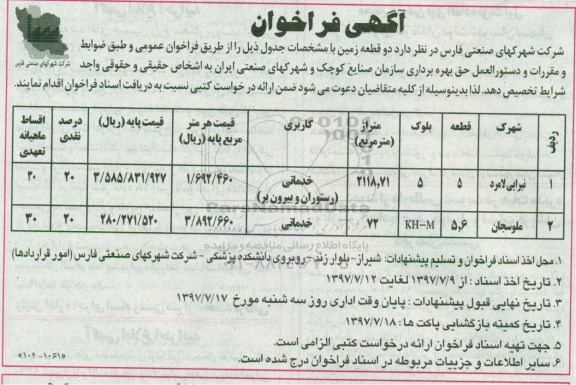 آگهی فراخوان
شرکت شهرکهای صنعتی فارس
شرکت شهرکهای صنعتی فارس در نظر دارد دو قطعه زمین با مشخصات جدول ذیل را از طریق فراخوان عمومی و طبق ضوابط
و مقررات و دستورالعمل حق بهره برداری سازمان صنایع کوچک و شهرکهای صنعتی ایران به اشخاص حقیقی و حقوقی واجد
شرایط تخصیص دهد. لذا بدینوسیله از کلیه متقاضیان دعوت می شود ضمن ارائه درخواست کتبی نسبت به دریافت اسناد فراخوان اقدام نمایند.
ردیف شهرک قطعه بلوک متراژ (مترمربع) کاربری قیمت هر متر مربع پایه (ریال) قیمت پایه (ریال) درصد نقدی اقساط ماهیانه تعهدی
۱ نیرابی لامرد ۵ ۵ ۲۱۱۸,۷۱ خدماتی (رستوران و بیرون بر) ۱/۶۹۲/۴۶۰ ۳/۵۸۵/۸۳۱/۹۲۷ ۲۰ ۳۰
۲ ملوسجان ۵,۶ KH-M ۷۲ خدماتی ۳/۸۹۲/۶۶۰ ۲۸۰/۲۷۱/۵۲۰ ۲۰ ۳۰
پایگاه اطلاع رسانی مناقصه و مزایده
۱. محل اخذ اسناد فراخوان و تسلیم پیشنهادات: شیراز- بلوار زند- روبروی دانشکده پزشکی - شرکت شهرکهای صنعتی فارس (امور قراردادها)
۲. تاریخ اخذ اسناد : از ۱۳۹۷/۷/۹ لغایت ۱۳۹۷/۷/۱۲
۳. تاریخ نهایی قبول پیشنهادات : پایان وقت اداری روز سه شنبه مورخ ۱۳۹۷/۷/۱۷
۴. تاریخ کمیته بازگشایی پاکت ها : ۱۳۹۷/۷/۱۸
۵. جهت تهیه اسناد فراخوان ارائه درخواست کتبی الزامی است.
۶. سایر اطلاعات و جزییات مربوطه در اسناد فراخوان درج شده است.
«۱۰۴-۱۰۶۱»